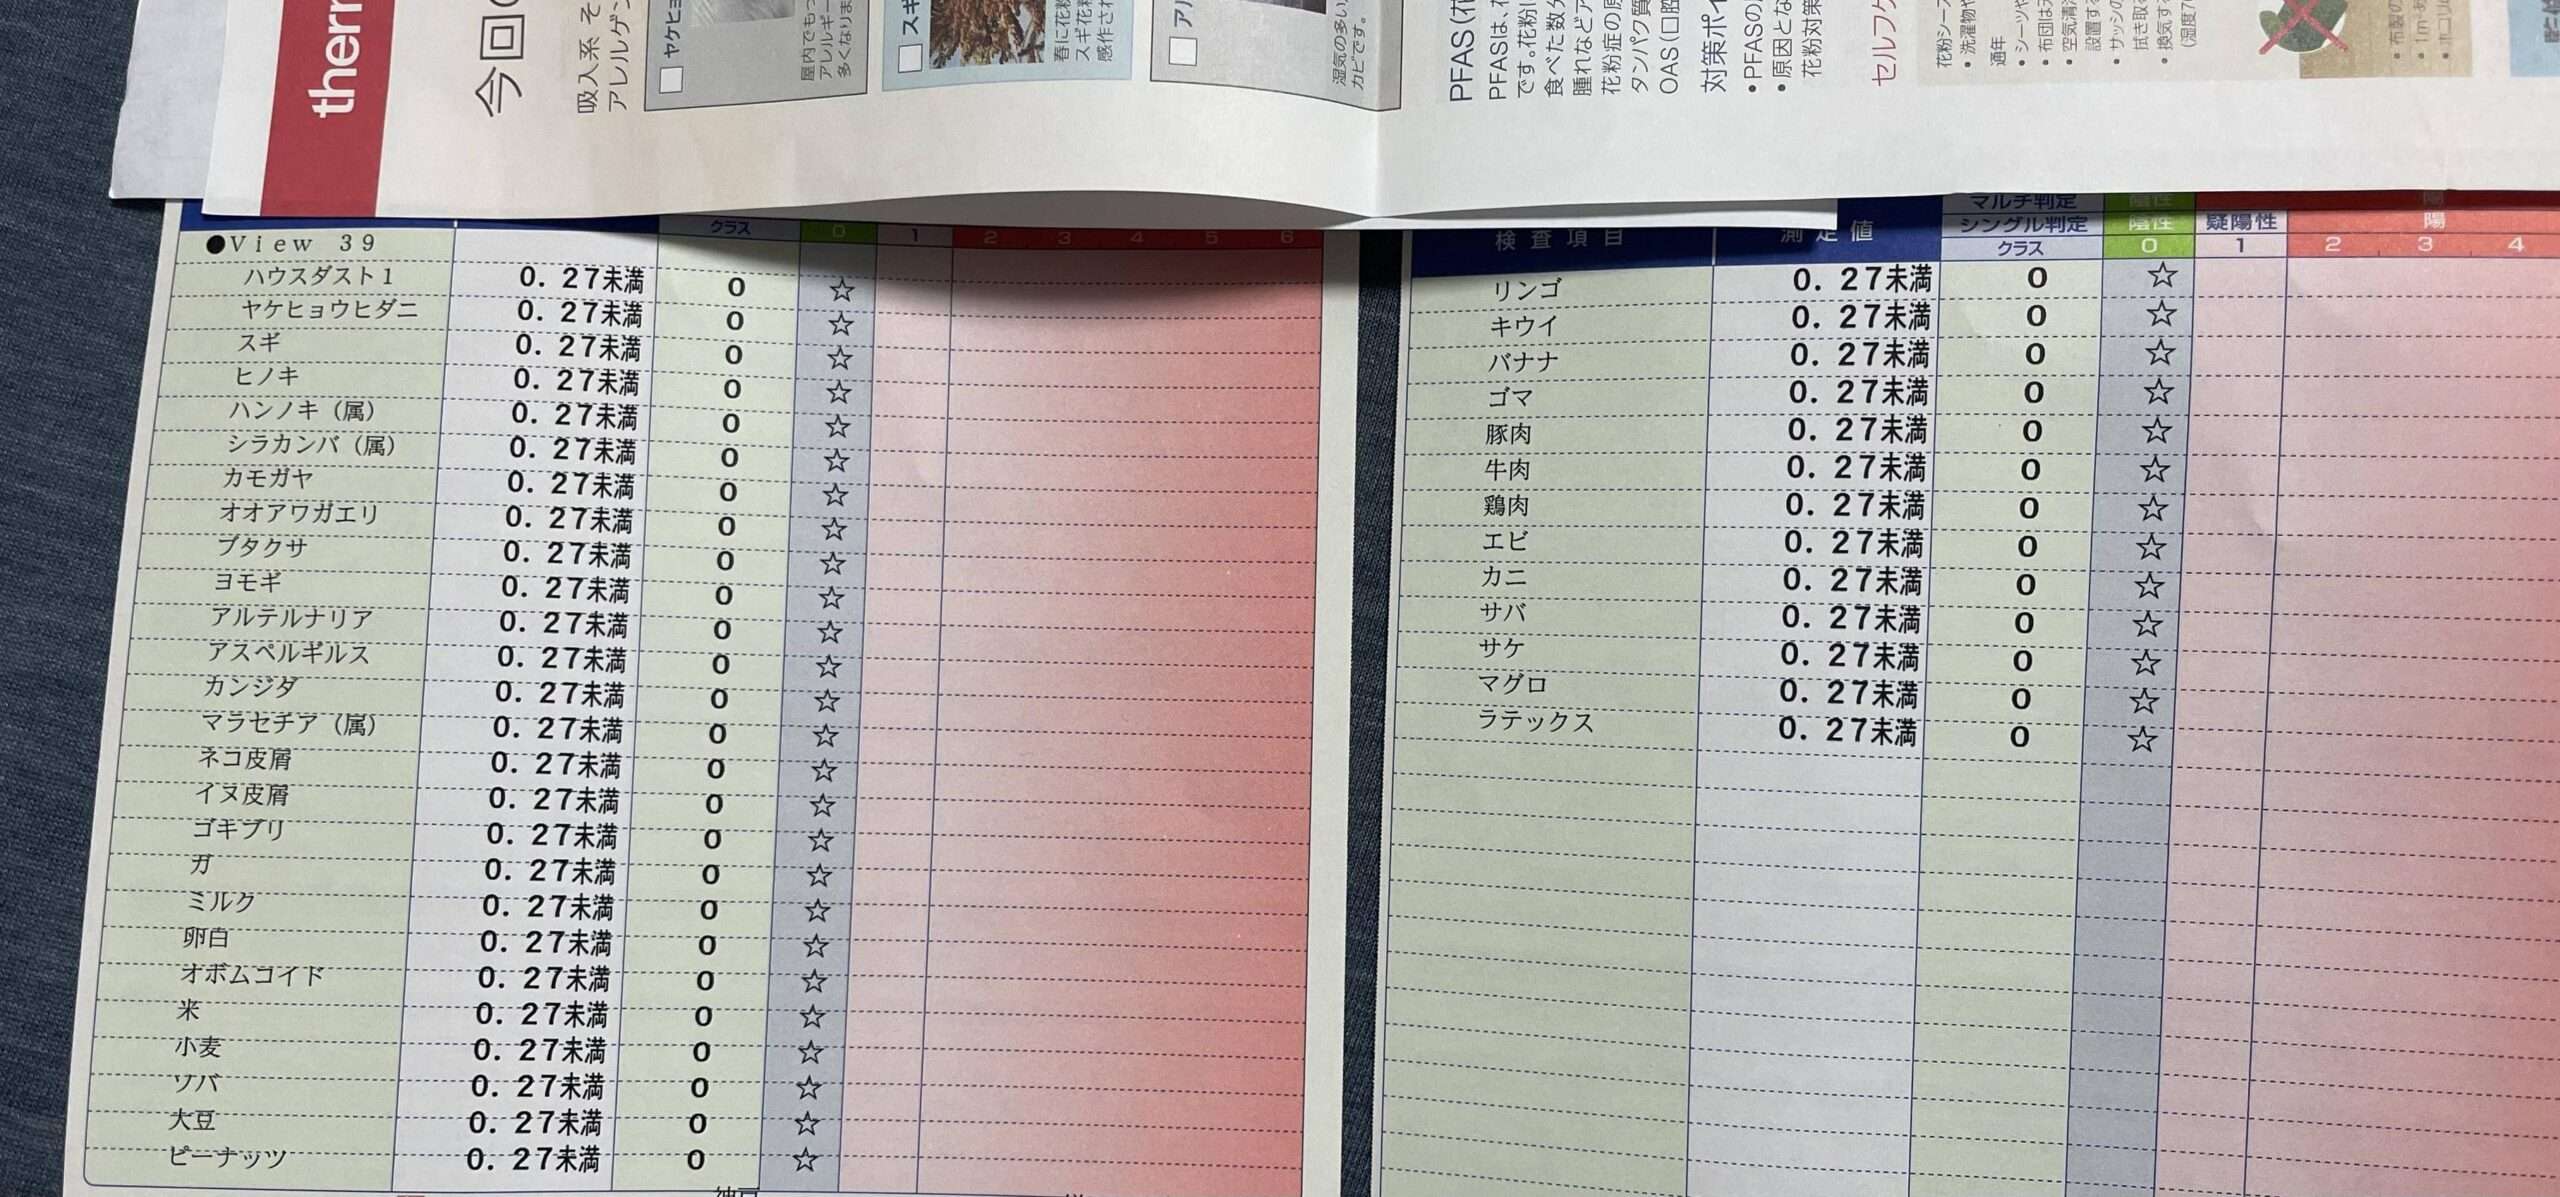 ther
今回
吸入系 そ
アレルゲン
ヤケヒョ
屋内でも
アレルギー
多くなりま
スギ
春に花粉
スギ花粉
感作され
ア
湿気の多い
カビです。
PFAS(花
PFASは、花
です。花粉に
食べた数分
腫れなどア
花粉症の原
タンパク質
OAS(口腔
対策ポイ
•PFASの
•原因とな
花粉対策
セルフケ
花粉シーズ
•洗濯物や
通年
•シーツや
•布団は天
•空気清浄
設置する
•サッシの
拭き取る
•換気する
•布製の
•1m³あ
•ホコリの
クラス 0 1 2 3 4 5 6
●View 39
ハウスダスト1 0.27未満 0 ☆
ヤケヒョウヒダニ 0.27未満 0 ☆
スギ 0.27未満 0 ☆
ヒノキ 0.27未満 0 ☆
ハンノキ（属） 0.27未満 0 ☆
シラカンバ（属） 0.27未満 0 ☆
カモガヤ 0.27未満 0 ☆
オオアワガエリ 0.27未満 0 ☆
ブタクサ 0.27未満 0 ☆
ヨモギ 0.27未満 0 ☆
アルテルナリア 0.27未満 0 ☆
アスペルギルス 0.27未満 0 ☆
カンジダ 0.27未満 0 ☆
マラセチア（属） 0.27未満 0 ☆
ネコ皮屑 0.27未満 0 ☆
イヌ皮屑 0.27未満 0 ☆
ゴキブリ 0.27未満 0 ☆
ガ 0.27未満 0 ☆
ミルク 0.27未満 0 ☆
卵白 0.27未満 0 ☆
オボムコイド 0.27未満 0 ☆
米 0.27未満 0 ☆
小麦 0.27未満 0 ☆
ソバ 0.27未満 0 ☆
大豆 0.27未満 0 ☆
ピーナッツ 0.27未満 0 ☆
マルチ判定 陰性 陽
シングル判定 陰性 疑陽性 陽
検査項目 測定値 クラス 0 1 2 3 4
リンゴ 0.27未満 0 ☆
キウイ 0.27未満 0 ☆
バナナ 0.27未満 0 ☆
ゴマ 0.27未満 0 ☆
豚肉 0.27未満 0 ☆
牛肉 0.27未満 0 ☆
鶏肉 0.27未満 0 ☆
エビ 0.27未満 0 ☆
カニ 0.27未満 0 ☆
サバ 0.27未満 0 ☆
サケ 0.27未満 0 ☆
マグロ 0.27未満 0 ☆
ラテックス 0.27未満 0 ☆